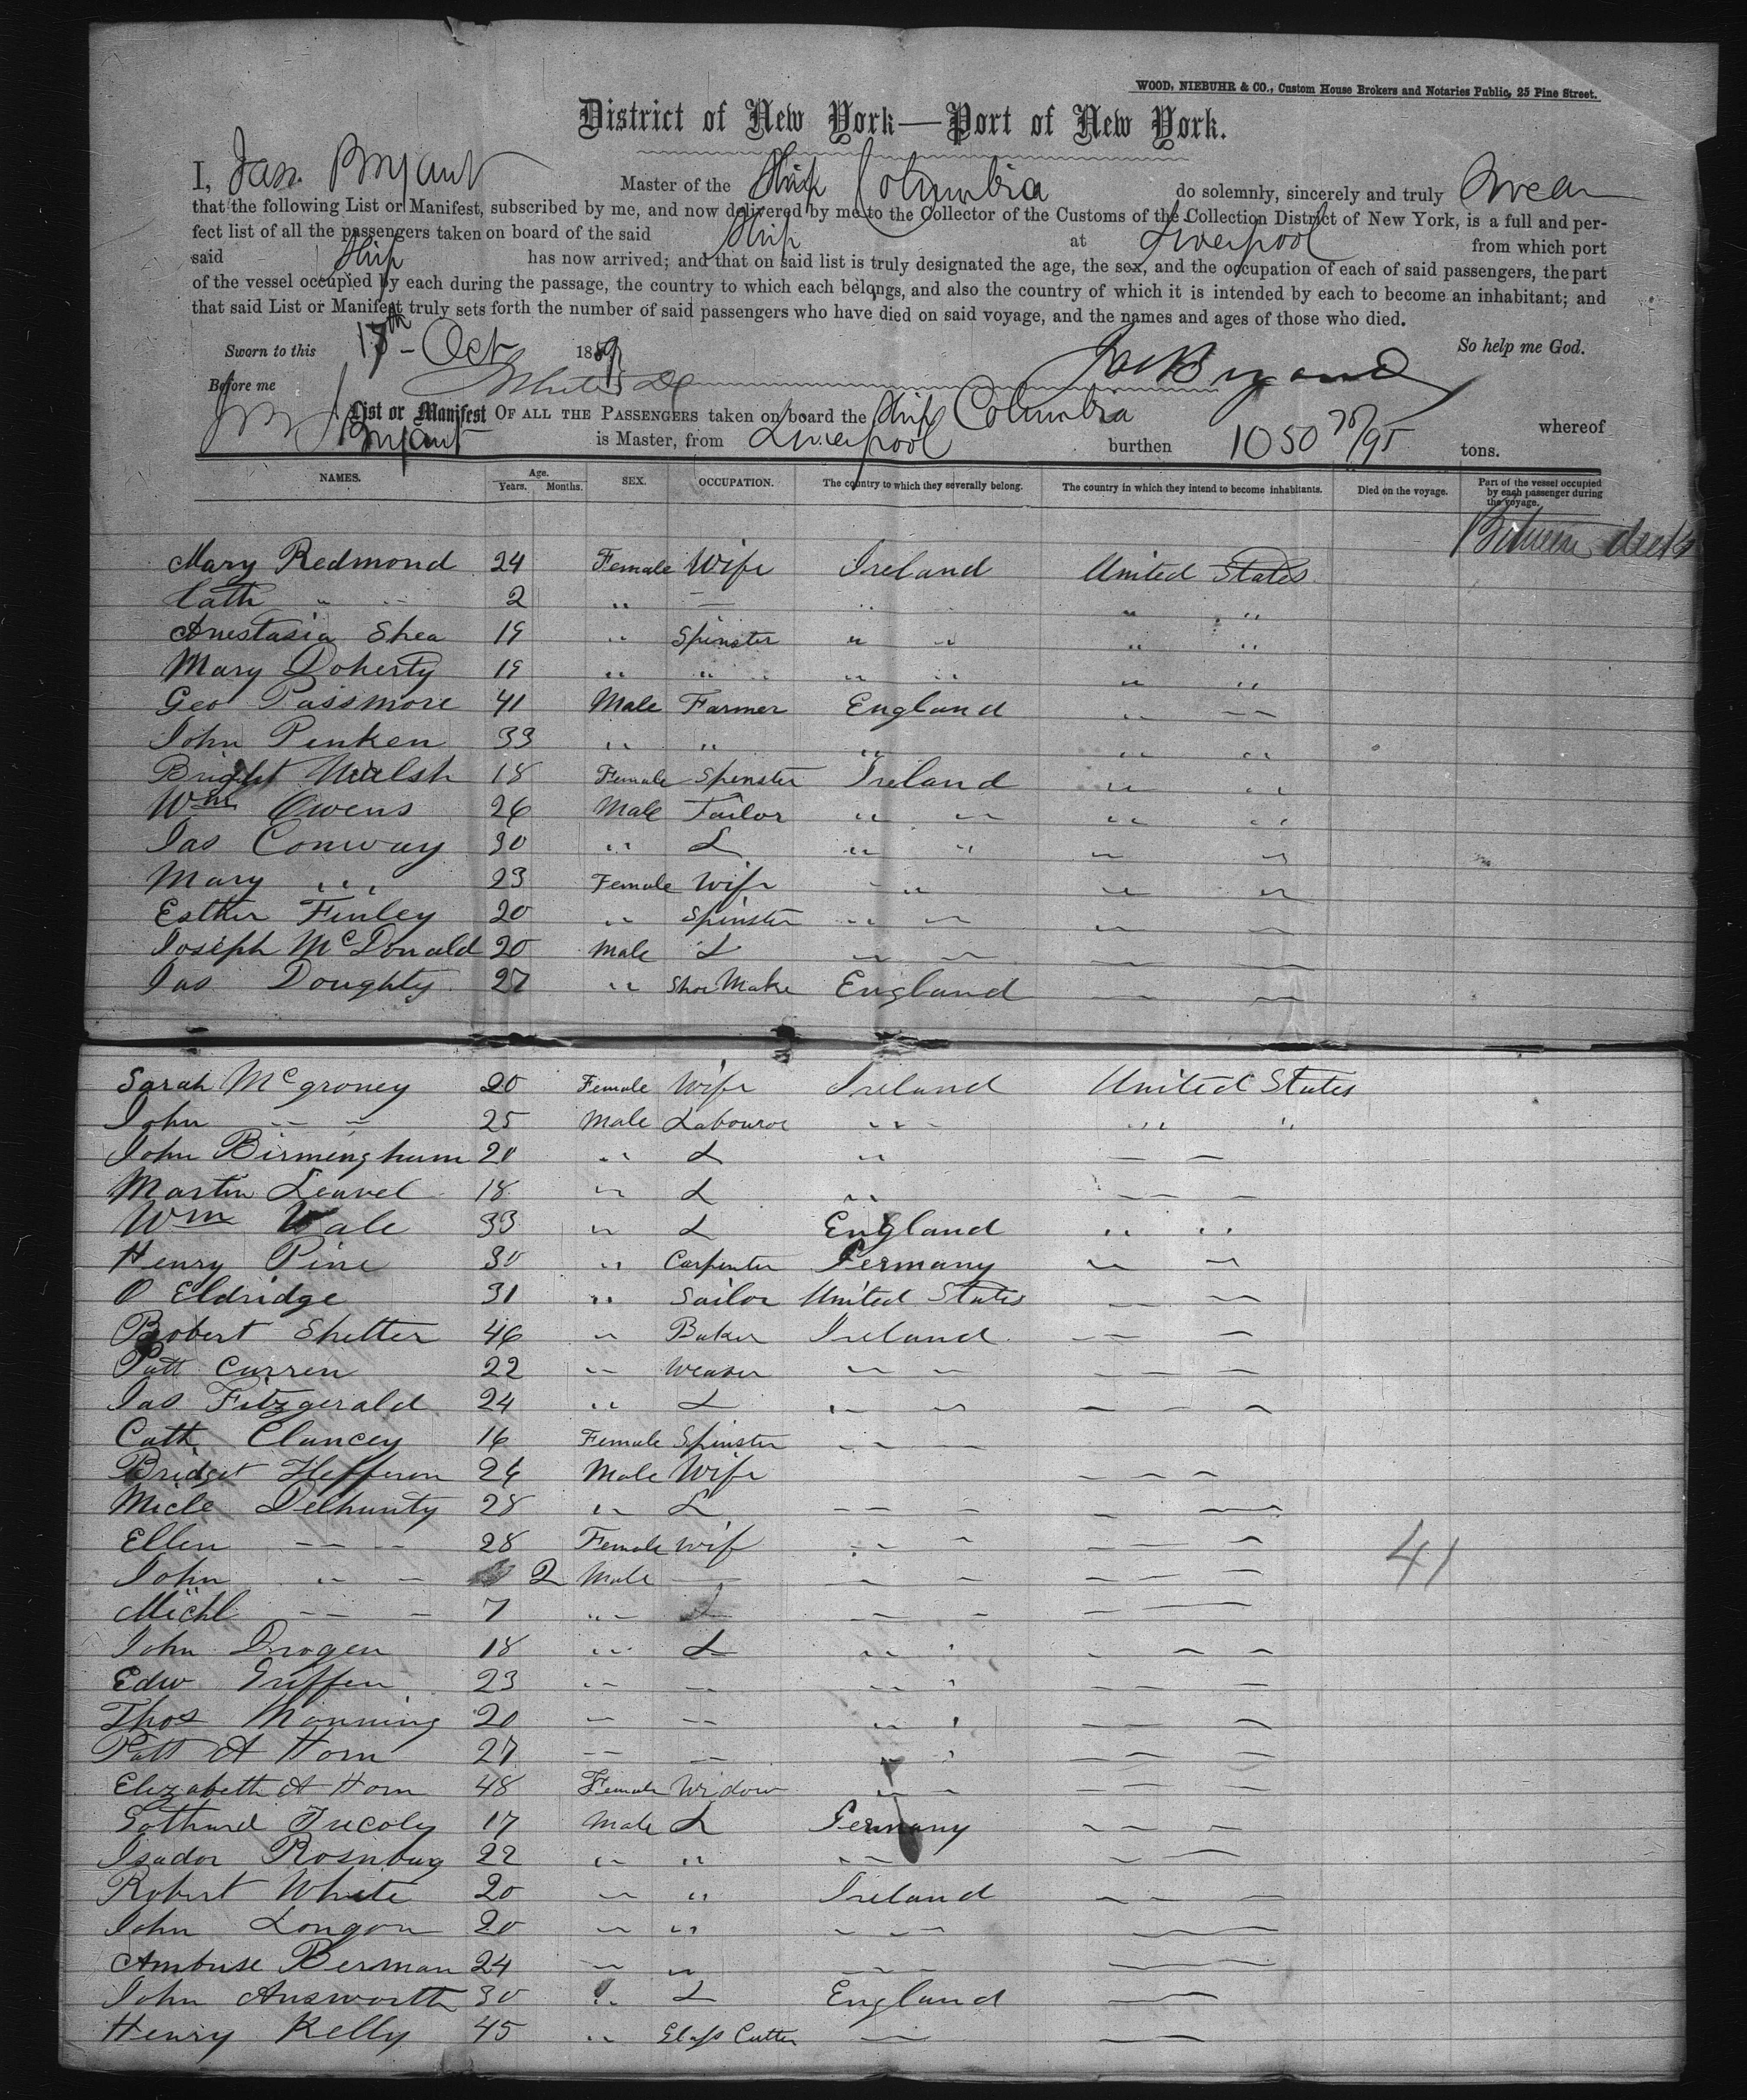 WOOD, NIEBUHR & CO., Custom House Brokers and Notaries Public, 25 Pine Street.
District of New York—Port of New York.
I, Jas. Bryant Master of the Ship Columbia do solemnly, sincerely and truly Swear
that the following List or Manifest, subscribed by me, and now delivered by me to the Collector of the Customs of the Collection District of New York, is a full and per-
fect list of all the passengers taken on board of the said Ship at Liverpool from which port
said Ship has now arrived; and that on said list is truly designated the age, the sex, and the occupation of each of said passengers, the part
of the vessel occupied by each during the passage, the country to which each belongs, and also the country of which it is intended by each to become an inhabitant; and
that said List or Manifest truly sets forth the number of said passengers who have died on said voyage, and the names and ages of those who died.
Sworn to this 17th Oct 1859 So help me God.
Before me Jas Bryant
List or Manifest OF ALL THE PASSENGERS taken on board the Ship Columbia whereof
Bryant is Master, from Liverpool burthen 1050 75/95 tons.
NAMES. Age. Years. Months. SEX. OCCUPATION. The country to which they severally belong. The country in which they intend to become inhabitants. Died on the voyage. Part of the vessel occupied by each passenger during the voyage.
Between decks
Mary Redmond 24 Female Wife Ireland United States
Cath " " 2 " — " " " "
Anestasia Shea 19 " Spinster " " " "
Mary Doherty 19 " " " " " " "
Geo Passmore 41 Male Farmer England " "
John Penken 33 " " " " "
Bright Walsh 18 Female Spinster Ireland " "
Wm Owens 26 Male Tailor " " " "
Jas Conway 30 " L " " " "
Mary " 23 Female Wife " " " "
Esther Finley 20 " Spinster " " " "
Joseph McDonald 20 Male L " " " "
Jas Doughty 27 " Shoe Make England " "
Sarah McGroney 20 Female Wife Ireland United States
John " " 25 Male Labourer " " " "
John Birmingham 20 " L " " "
Martin Leavel 18 " L " " "
Wm Vale 33 " L England " "
Henry Pine 30 " Carpenter Germany " "
O Eldridge 31 " Sailor United States " "
Robert Shelter 46 " Baker Ireland " "
Patt Curren 22 " Weaver " " " "
Jas Fitzgerald 24 " L " " " "
Cath Clancey 16 Female Spinster " "
Bridget Hefferon 26 Male Wife " "
Micle Delhunty 28 " L " " " "
Ellen " " 28 Female Wif " " " "
John " " 2 Male — " " " "
41
Michl " " 7 " L " " " "
John Drogen 18 " L " " " "
Edw Griffen 23 " " " " " "
Thos Manning 20 " " " " " "
Patt A Horn 27 " " " " " "
Elizabeth A Horn 48 Female Widow " " " "
Gothard 17 Male L Germany " "
Isador Rosnbug 22 " " " " "
Robert White 20 " " Ireland " "
John Longon 20 " " " " " "
Ambuse Berman 24 " " " " " "
John Answorth 30 " L England " "
Henry Kelly 45 " Glass Cutter " " "